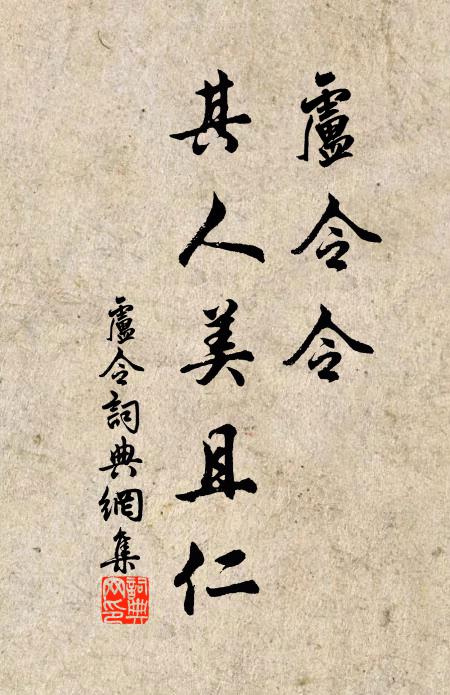 盧令令
其人美且仁
盧令詞典網集
詞典
网印